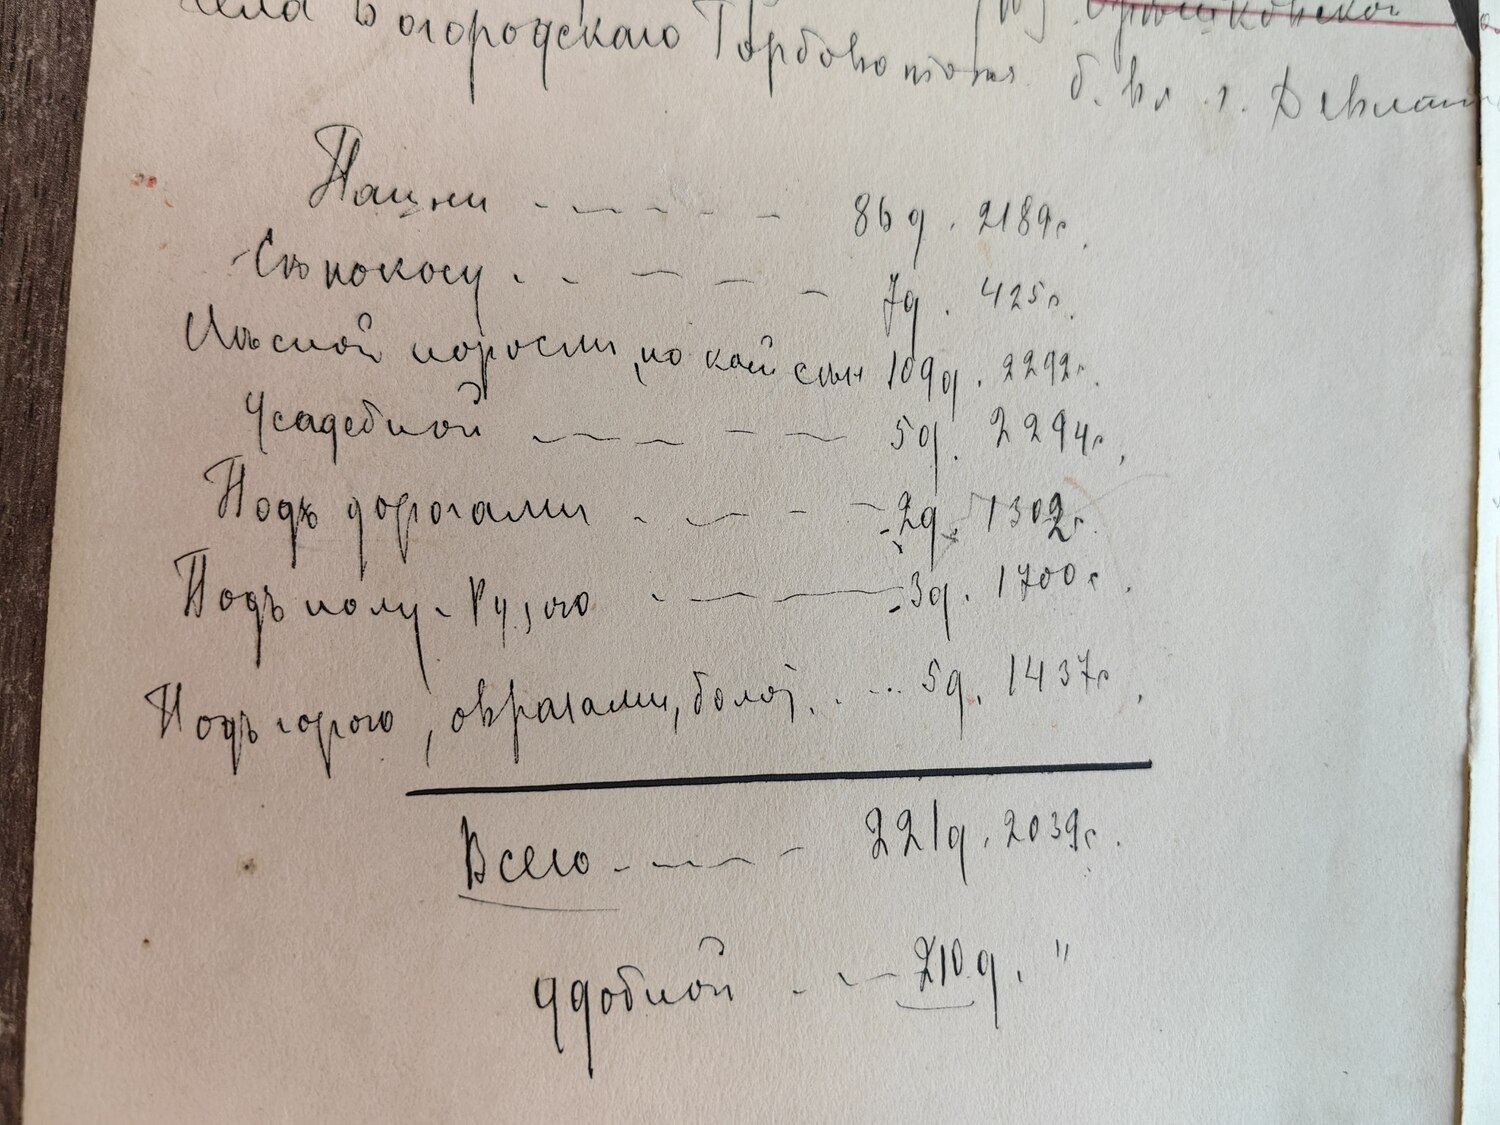 села Богородскаго Горбово тож б. вл. г.
Пашни - - - - - 86 д. 2189 с.
Сѣнокосу . . - - - 7 д. 425 с.
Лѣсной поросли, по коей сѣн 109 д. 2292 с.
Усадебной - - - - - 5 д. 2294 с.
Подъ дорогами - - - - 2 д. 1302 с.
Подъ полу - - - 3 д. 1700 с.
Подъ горою, оврагами, болот. . . . . 5 д. 1437 с.
Всего - - - - 221 д. 2039 с.
удобной . - - 210 д. "